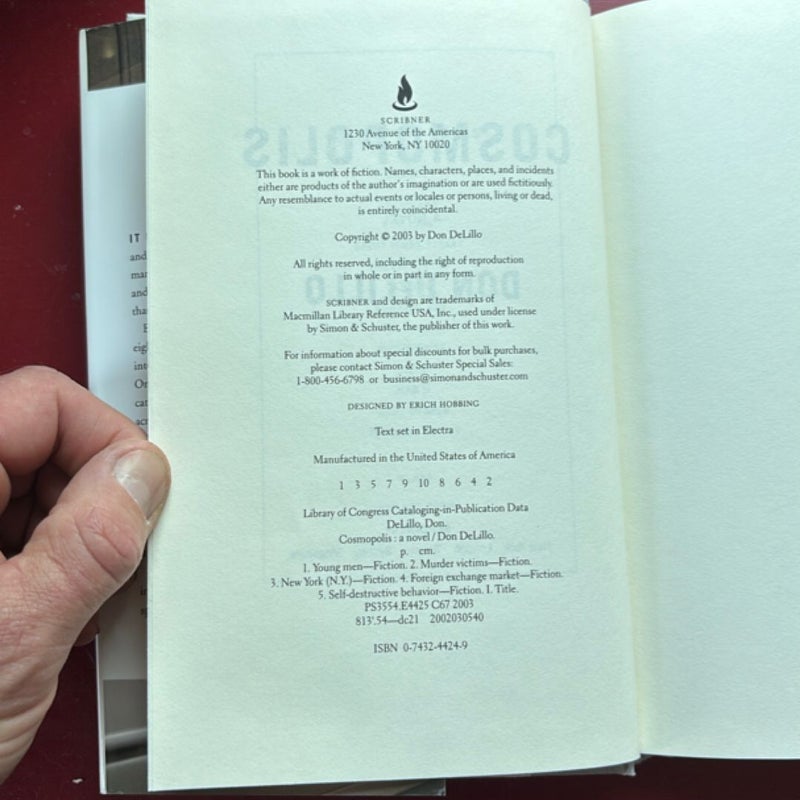 SCRIBNER
1230 Avenue of the Americas
New York, NY 10020
This book is a work of fiction. Names, characters, places, and incidents
either are products of the author's imagination or are used fictitiously.
Any resemblance to actual events or locales or persons, living or dead,
is entirely coincidental.
Copyright © 2003 by Don DeLillo
All rights reserved, including the right of reproduction
in whole or in part in any form.
SCRIBNER and design are trademarks of
Macmillan Library Reference USA, Inc., used under license
by Simon & Schuster, the publisher of this work.
For information about special discounts for bulk purchases,
please contact Simon & Schuster Special Sales:
1-800-456-6798 or business@simonandschuster.com
DESIGNED BY ERICH HOBBING
Text set in Electra
Manufactured in the United States of America
1 3 5 7 9 10 8 6 4 2
Library of Congress Cataloging-in-Publication Data
DeLillo, Don.
Cosmopolis : a novel / Don DeLillo.
p. cm.
1. Young men—Fiction. 2. Murder victims—Fiction.
3. New York (N.Y.)—Fiction. 4. Foreign exchange market—Fiction.
5. Self-destructive behavior—Fiction. I. Title.
PS3554.E4425 C67 2003
813'.54—dc21 2002030540
ISBN 0-7432-4424-9
IT
and